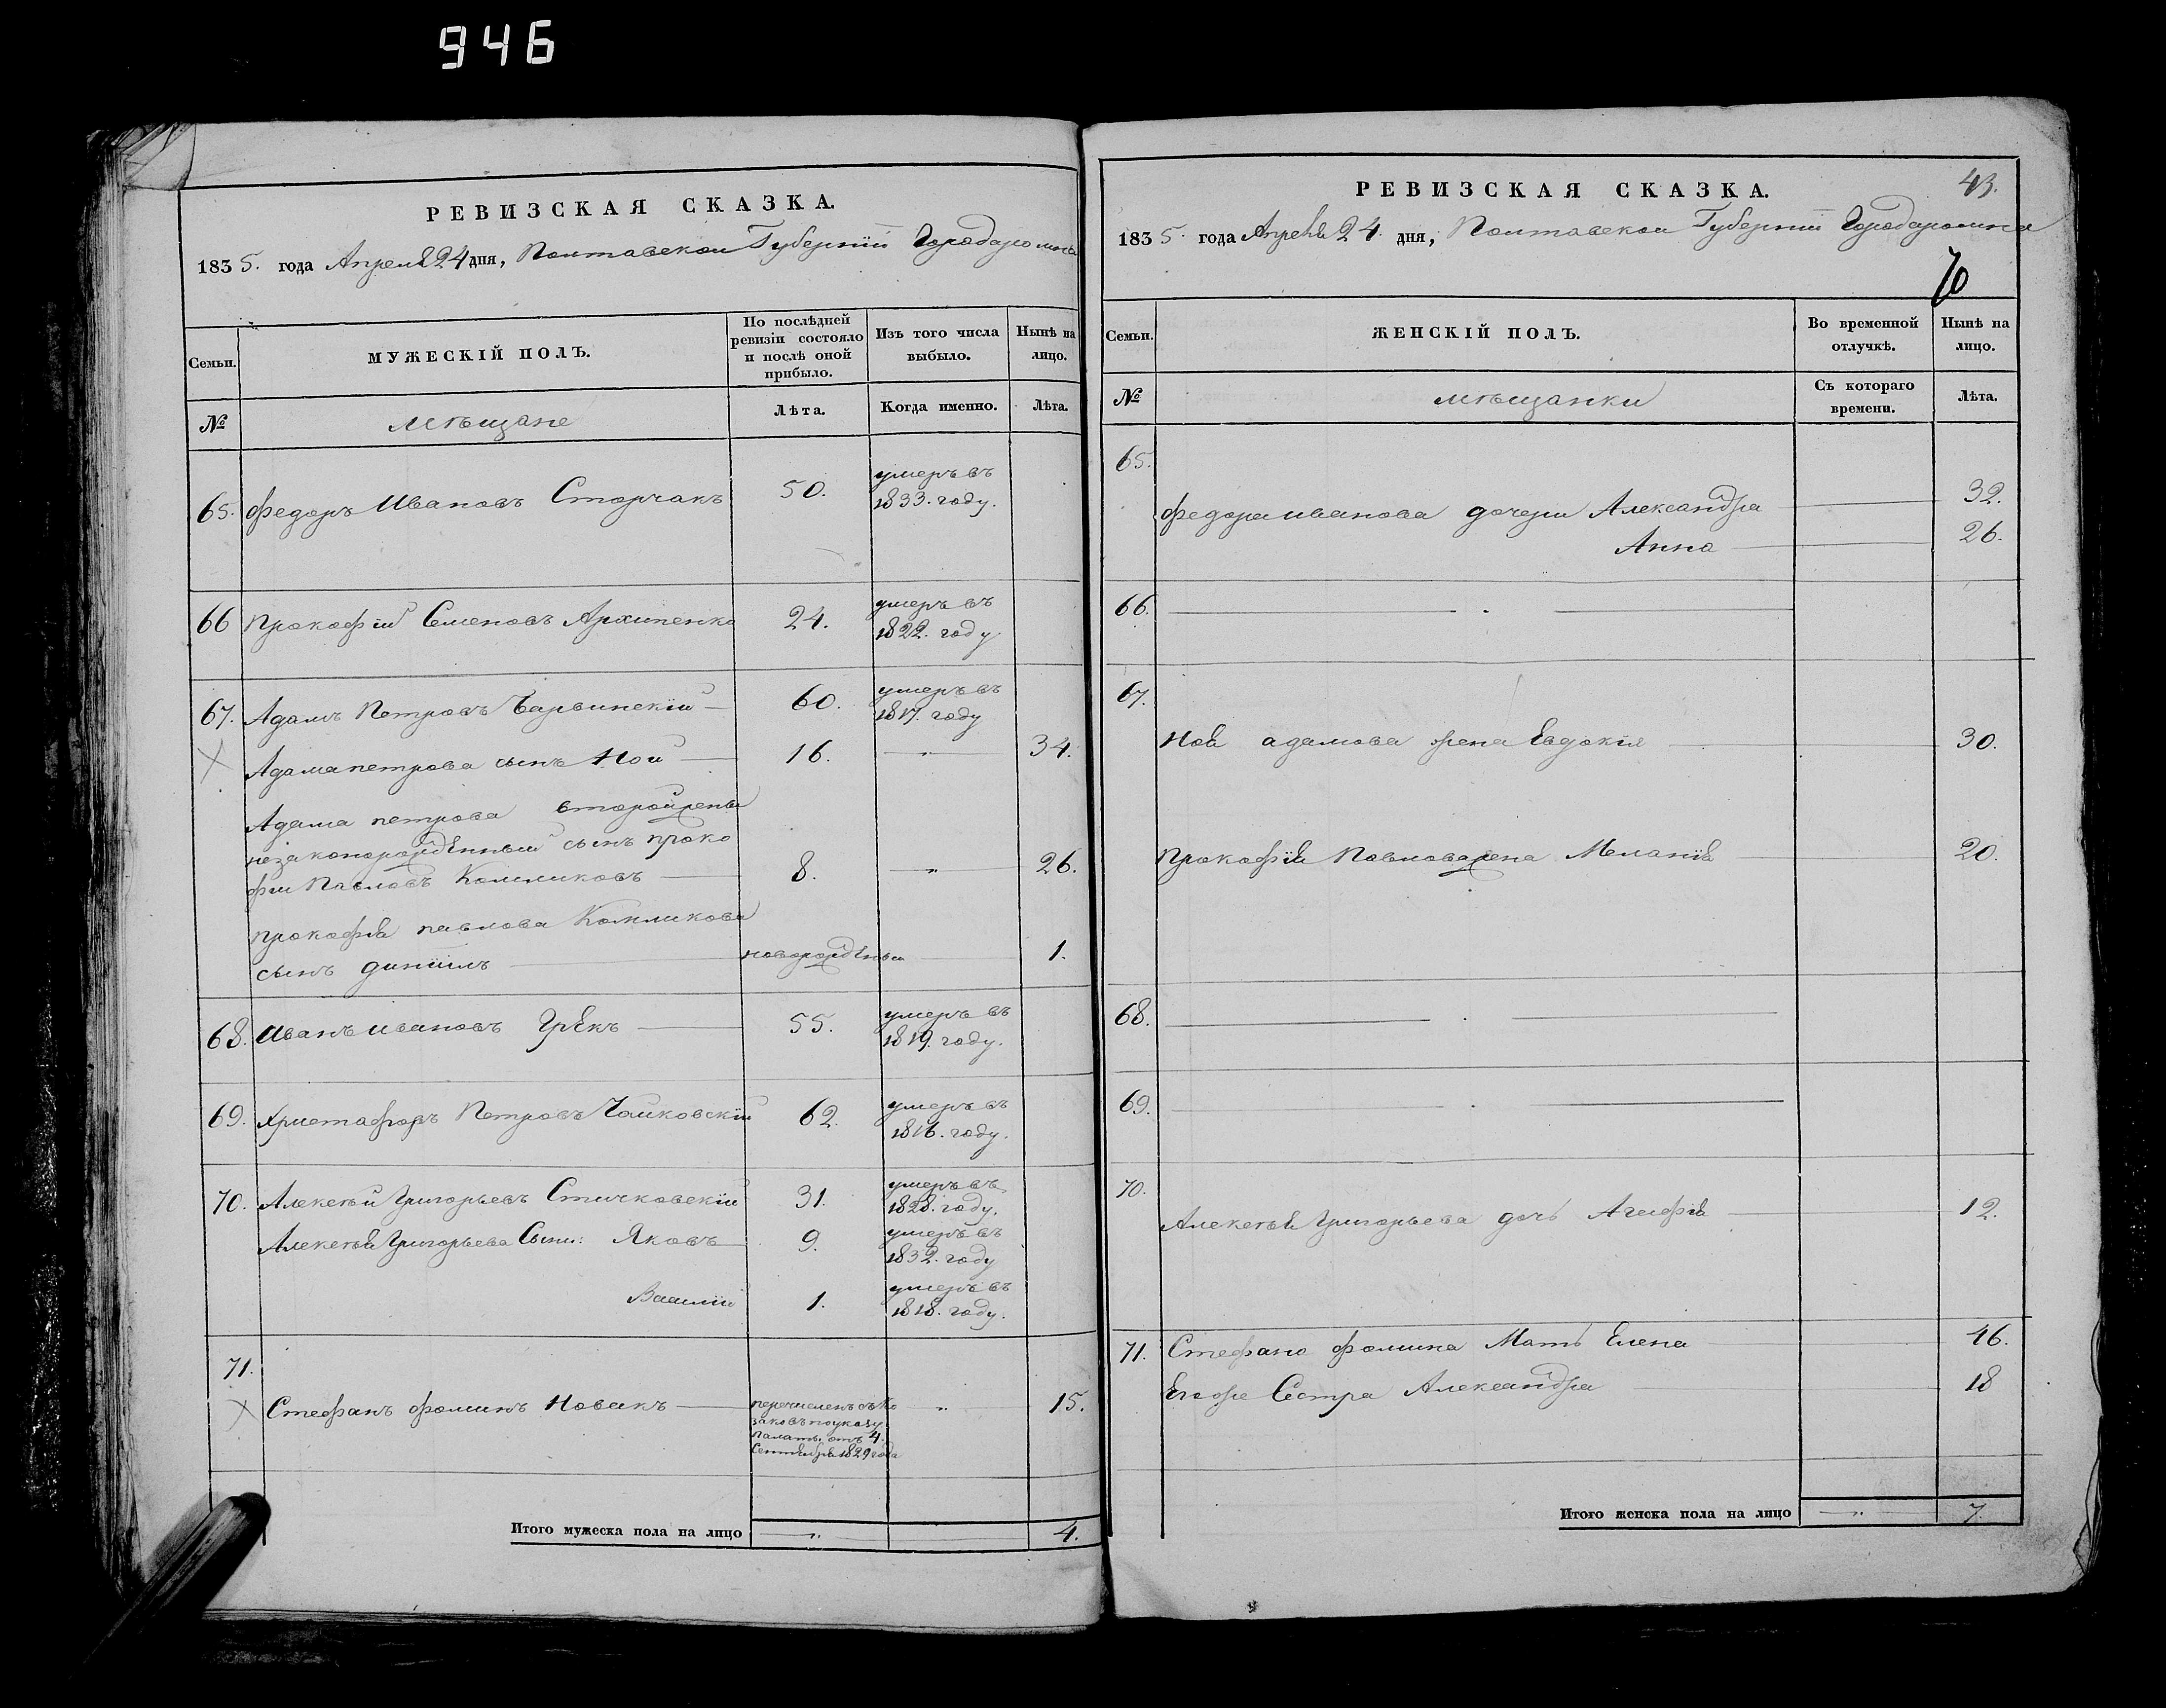 946
РЕВИЗСКАЯ СКАЗКА.
1835. года Апреля 24 дня, Полтавской Губернїи Города Ромна
Семьи. МУЖЕСКІЙ ПОЛЪ. По послѣдней ревизіи состояло и послѣ оной прибыло. Изъ того числа выбыло. Нынѣ на лицо.
№ мѣщане Лѣта. Когда именно. Лѣта.
65. Федоръ Ивановъ Сторчакъ 50. умеръ въ
1833. году.
66 Прокофїй Семеновъ Архипенко 24. умеръ въ
1822. году
67. Адамъ Петровъ Чарвинскїй 60. умеръ въ
1817. году
Адама петрова сынъ Ной 16. " 34.
Адама петрова второй жены
незаконорожденный сынъ Проко
фїй Павловъ Комликовъ 8. " 26.
Прокофїя павлова Комликова
сынъ данїилъ новорожденый 1.
68. Иванъ Ивановъ Грекъ 55. умеръ въ
1819. году.
69. Христафоръ Петровъ Чайковскїй 62. умеръ въ
1816. году.
70. Алексѣй Григорьевъ Стичковскїй 31. умеръ въ
1828. году.
Алексѣя Григорьева Сыни: Яковъ 9. умеръ въ
1832. году
Василїй 1. умеръ въ
1818. году.
71.
Стефанъ Фоминъ Новакъ перечисленъ съ Ко
заковъ по указу
палаты отъ 4.
Сентября 1829 года " 15.
Итого мужеска пола на лицо " 4.
РЕВИЗСКАЯ СКАЗКА. 43.
1835. года Апреля 24. дня, Полтавской Губернїи Города Ромна
70
Семьи. ЖЕНСКІЙ ПОЛЪ. Во временной отлучкѣ. Нынѣ на лицо.
№ мѣщанки Съ котораго времени. Лѣта.
65.
Федора иванова дочери Александра 32.
Анна 26.
66.
67.
Ноя адамова жена Евдокїя 30.
Прокофїя Павлова жена Меланїя 20.
68.
69.
70.
Алексѣя Григорьева дочь Агафїя 12.
71. Стефана фомина Мать Елена 46.
Егоже Сестра Александра 18
Итого женска пола на лицо " 7.